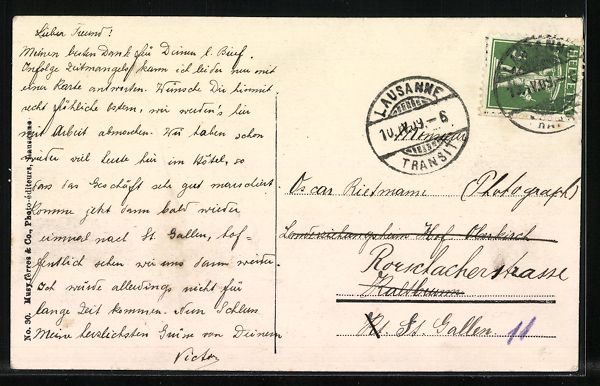 Lieber Freund!
Meinen besten Dank für Deinen l. Brief.
Infolge Zeitmangel kann ich leider nur mit
einer Karte antworten. Wünsche Dir hiermit
recht fröhliche Ostern, wir werden's hier
mit Arbeit abmachen. Wir haben schon
wieder viel Leute hier im Hôtel, so
dass das Geschäft sehr gut marschiert.
Komme jetzt dann bald wieder
einmal nach St. Gallen, hof-
fentlich sehen wir uns dann wieder.
Ich würde allerdings nicht für
lange Zeit kommen. Nun Schluss
Meine herzlichsten Grüsse von Deinem
Victor
No. 30. & Co., Photo-éditeurs, Lausanne
LAUSANNE
10.IV.09.-6
TRANSIT
LAUSANNE
HELVETIA
Monsieur
Oscar Rietmann (Photograph)
Landerziehungsheim Hof Oberkirch
Rorschacherstrasse
Kaltbrunn
Kt. St. Gallen 11